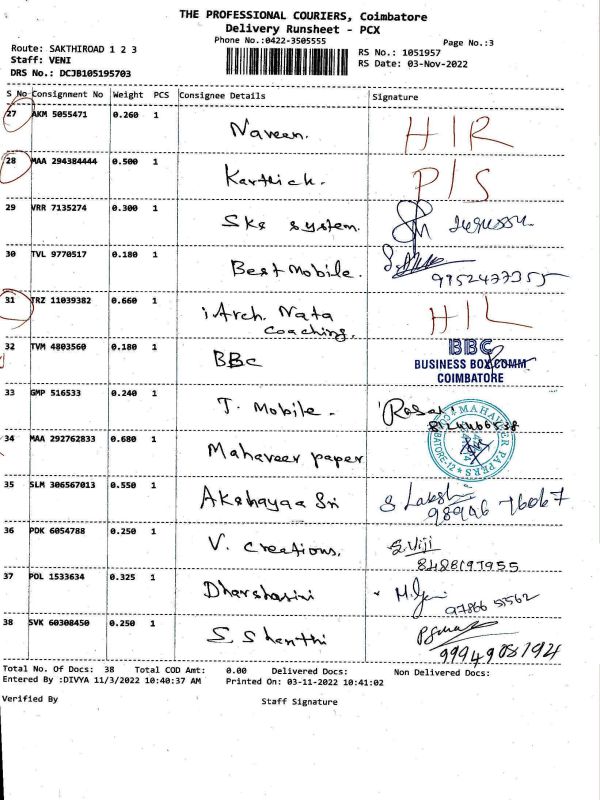 THE PROFESSIONAL COURIERS, Coimbatore
Delivery Runsheet - PCX
Phone No.:0422-3505555
Page No.:3
Route: SAKTHIROAD 1 2 3
Staff: VENI
DRS No.: DCJB105195703
RS No.: 1051957
RS Date: 03-Nov-2022
S No Consignment No Weight PCS Consignee Details Signature
27 AKM 5055471 0.260 1 Naveen. H/R
28 MAA 294384444 0.500 1 Karthick. P/S
29 VRR 7135274 0.300 1 Sks system.
30 TVL 9770517 0.180 1 Best Mobile.
9952477355
31 TRZ 11039382 0.660 1 iArch. Nata H/L
Coaching.
32 TVM 4803560 0.180 1 BBC
BBC
BUSINESS BOX COMM
COIMBATORE
33 GMP 516533 0.240 1 T. Mobile.
34 MAA 292762833 0.680 1 Mahaveer paper
MAHAVEER PAPERS
35 SLM 306567013 0.550 1 Akshayaa Sri S Laksh
98946 76067
36 PDK 6054788 0.250 1 V. Creations. S.Viji
8428197955
37 POL 1533634 0.325 1 Dharshasini
97866 51562
38 SVK 60308450 0.250 1 S. Shanthi
9994908194
Total No. Of Docs: 38 Total COD Amt: 0.00 Delivered Docs: Non Delivered Docs:
Entered By :DIVYA 11/3/2022 10:40:37 AM Printed On: 03-11-2022 10:41:02
Verified By Staff Signature